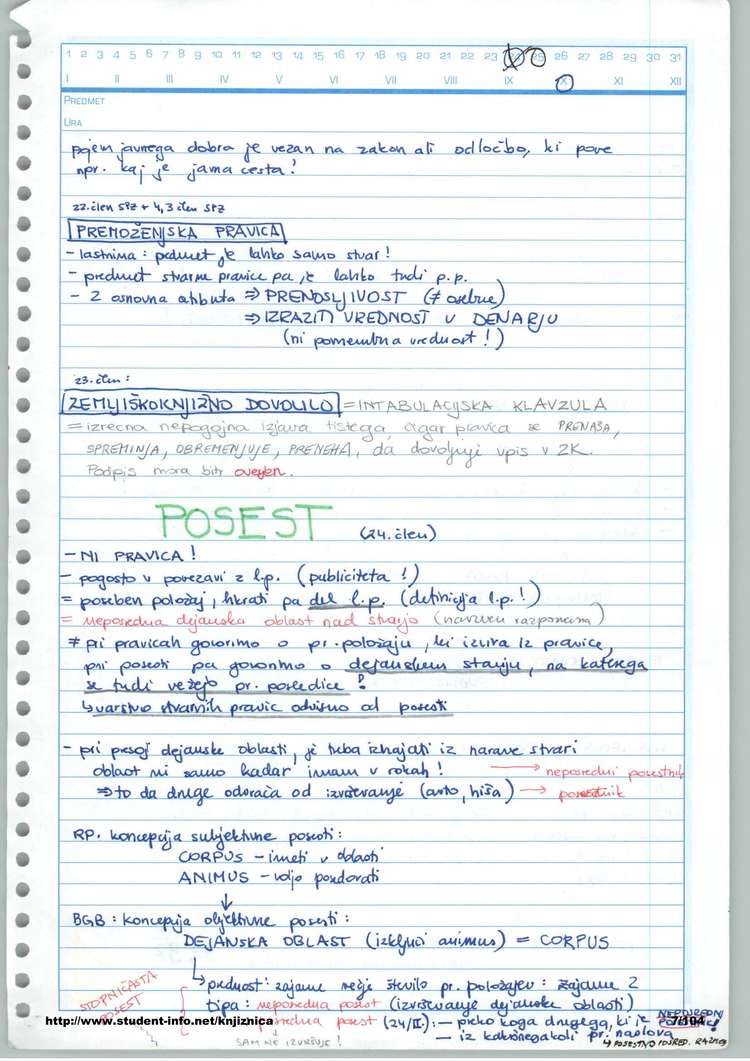 1 2 3 4 5 6 7 8 9 10 11 12 13 14 15 16 17 18 19 20 21 22 23 25 26 27 28 29 30 31
I II III IV V VI VII VIII IX X XI XII
PREDMET
URA
pojem javnega dobra je vezan na zakon ali odločbo, ki pove
npr. kaj je javna cesta!
22. člen SPZ + 4,3 člen SPZ
PREMOŽENJSKA PRAVICA
- lastnina: predmet je lahko samo stvar!
- predmet stvarne pravice pa je lahko tudi p.p.
- 2 osnovna atributa ⇒ PRENOSLJIVOST (≠ osebne)
⇒ IZRAZITI VREDNOST V DENARJU
(ni pomembna vrednost!)
23. člen:
ZEMLJIŠKOKNJIŽNO DOVOLILO = INTABULACIJSKA KLAVZULA
= izrecna nepogojna izjava tistega, čigar pravica se PRENAŠA,
SPREMINJA, OBREMENJUJE, PRENEHA, da dovoljuje vpis v ZK.
Podpis mora biti overjen.
POSEST (24. člen)
- NI PRAVICA!
- pogosto v povezavi z l.p. (publiciteta!)
= poseben položaj, hkrati pa del l.p. (definicija l.p.!)
= neposredna dejanska oblast nad stvarjo
≠ pri pravicah govorimo o pr. položaju, ki izvira iz pravice,
pri posesti pa govorimo o dejanskem stanju, na katerega
se tudi vežejo pr. posledice!
↳ varstvo stvarnih pravic odvisno od posesti
- pri presoji dejanske oblasti, je treba izhajati iz narave stvari
oblast ni samo kadar imam v rokah! → neposredni posestnik
⇒ to da druge odvrača od izvrševanje (avto, hiša) → posestnik
RP. koncepcija subjektivne posesti:
CORPUS - imeti v oblasti
ANIMUS - voljo posedovati
↓
BGB: koncepcija objektivne posesti:
DEJANSKA OBLAST (izključi animus) = CORPUS
↳ prednost: zajame večje število pr. položajev: zajame 2
STOPNIČASTA POSEST
tipa: neposredna posest (izvrševanje dejanske oblasti)
http://www.student-info.net/knjiznica posredna posest (24/II.): - preko koga drugega, ki je NEPOSREDNI 7/104
SAM NE IZVRŠUJE! - iz kakršnegakoli pr. naslova
↳ POSESTNO POSRED. RAZMERJE